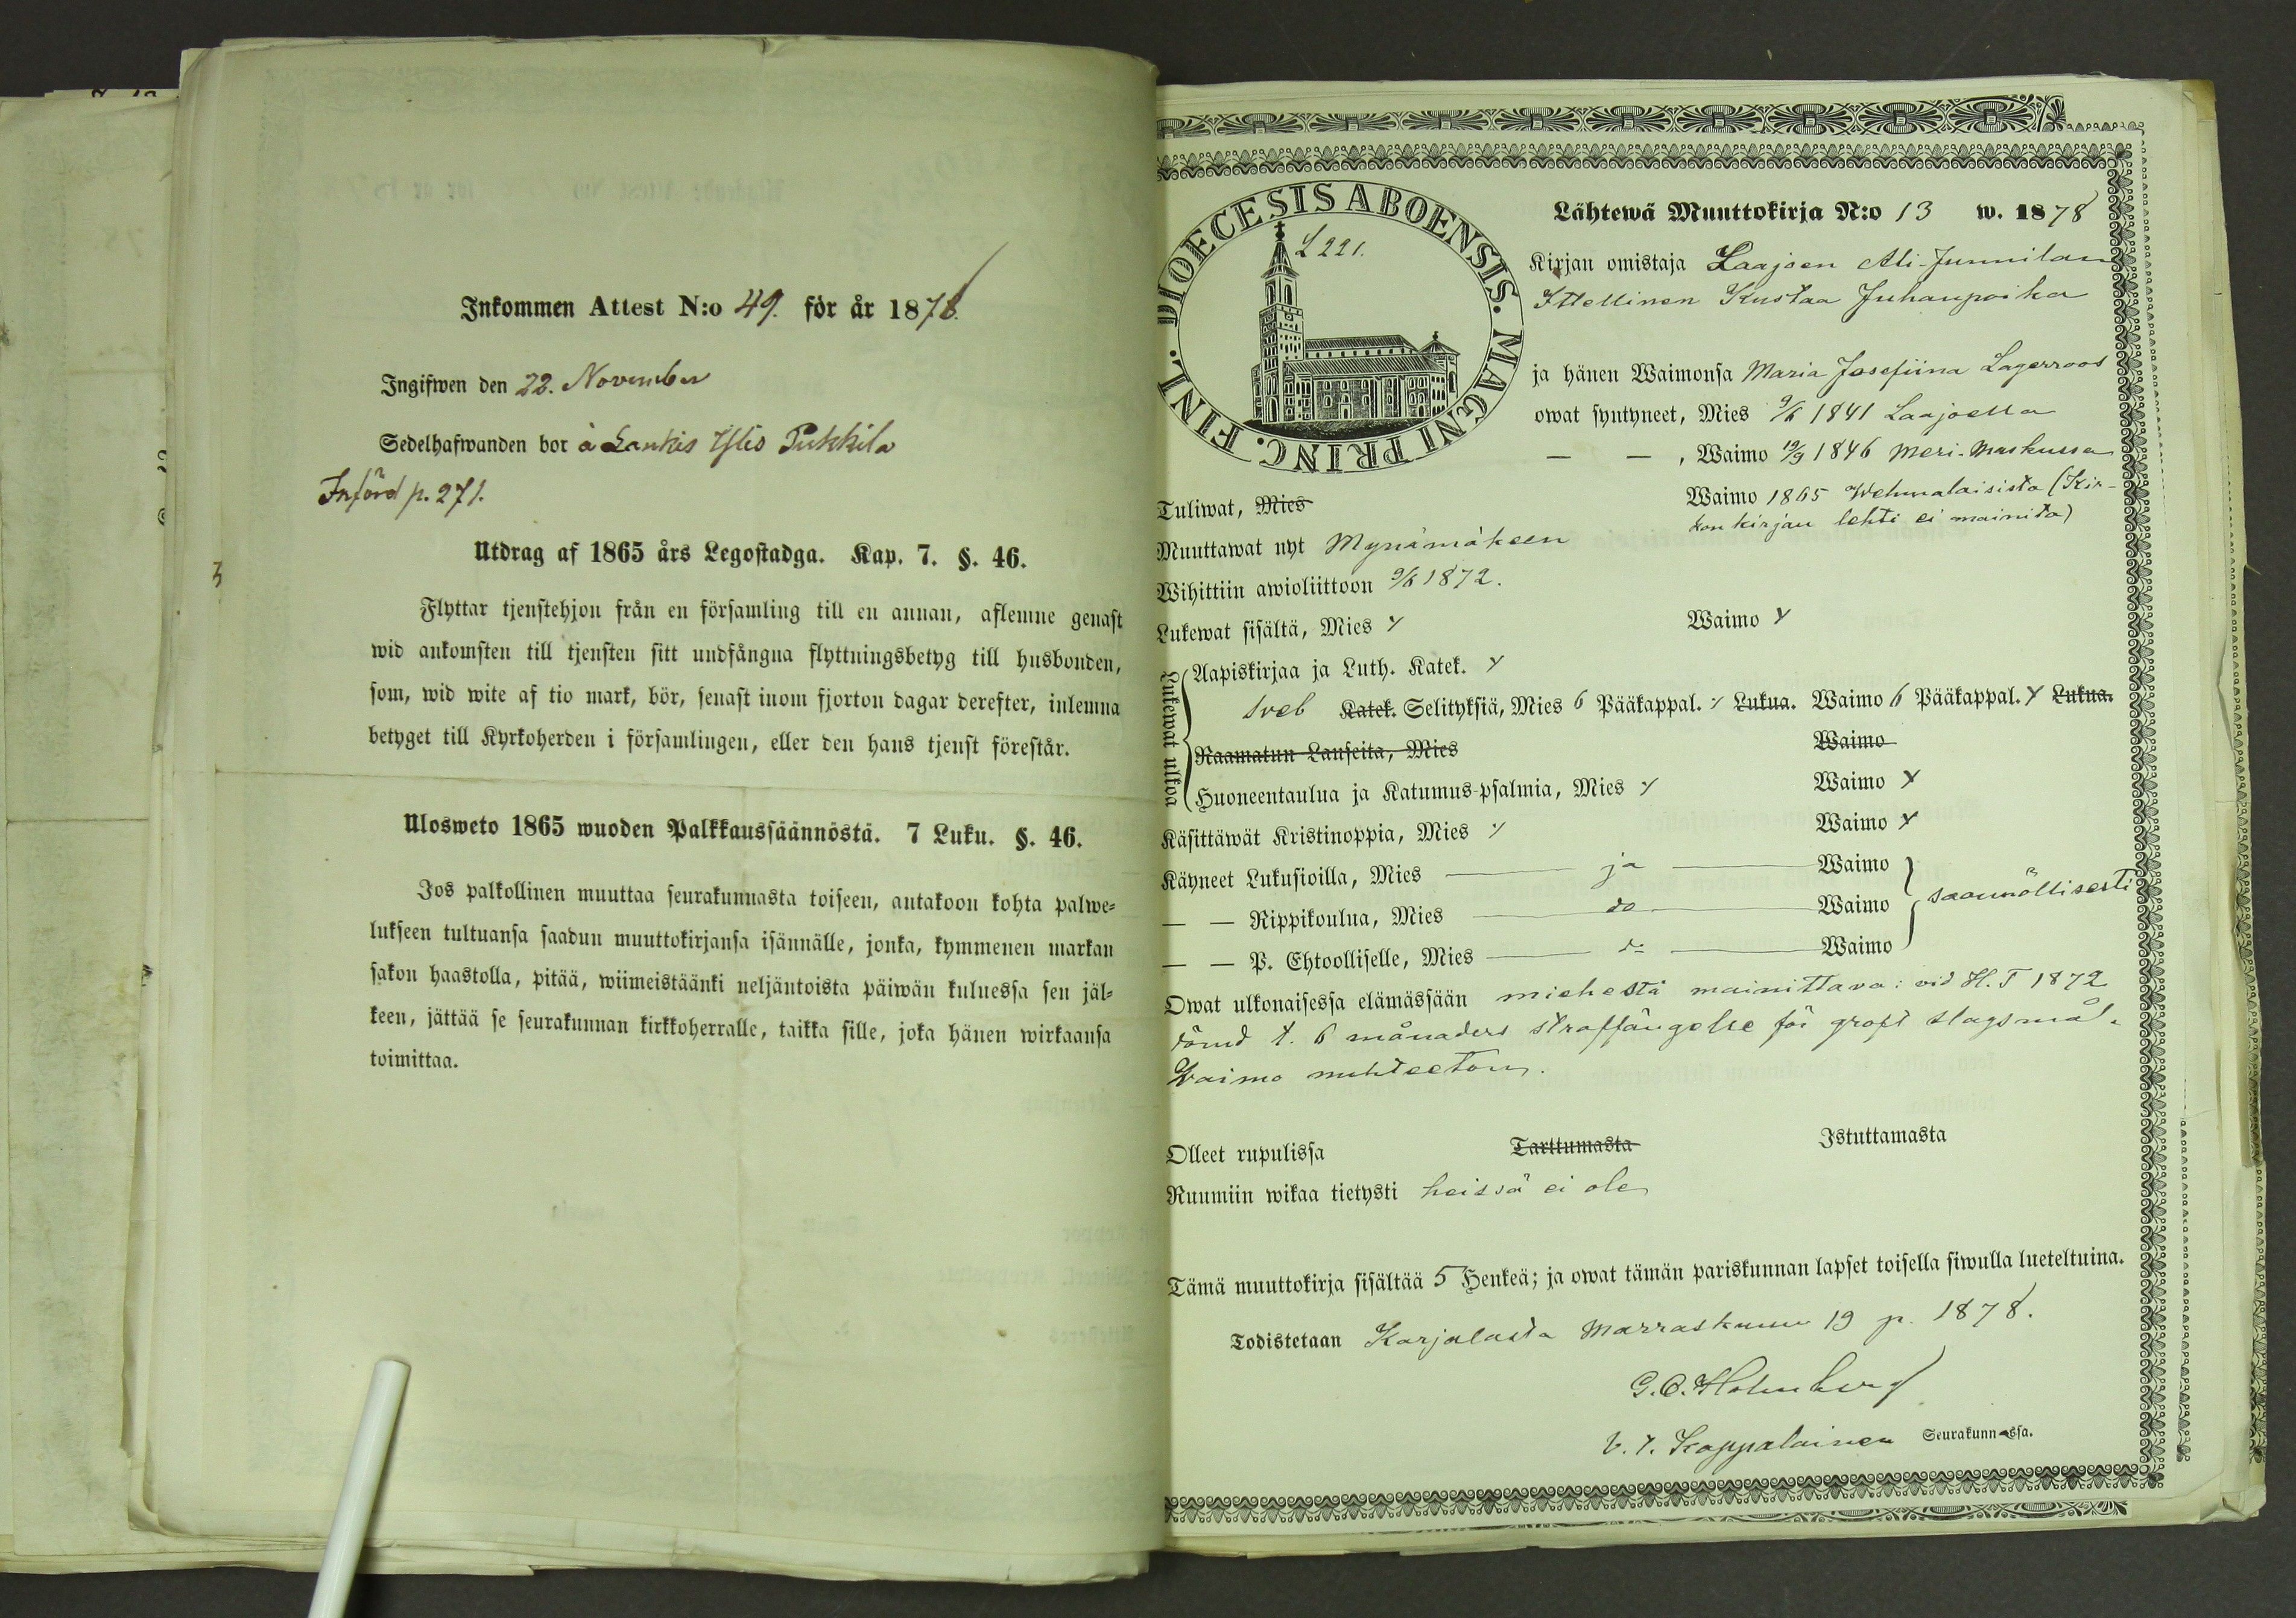 Inkommen Attest N:o 49. för år 1878.
Ingifwen den 22. November
Sedelhafwanden bor å Lankis Yliö Pukkila
Införd p. 271.
Utdrag af 1865 års Legostadga. Kap. 7. §. 46.
Flyttar tjenstehjon från en församling till en annan, aflemne genast
wid ankomsten till tjensten sitt undfångna flyttningsbetyg till husbonden,
som, wid wite af tio mark, bör, senast inom fjorton dagar derefter, inlemna
betyget till Kyrkoherden i församlingen, eller den hans tjenst förestår.
Ulosweto 1865 wuoden Palkkaussäännöstä. 7 Luku. §. 46.
Jos palkollinen muuttaa seurakunnasta toiseen, antakoon kohta palwe-
lukseen tultuansa saadun muuttokirjansa isännälle, jonka, kymmenen markan
sakon haastolla, pitää, wiimeistäänki neljäntoista päiwän kuluessa sen jäl-
keen, jättää se seurakunnan kirkkoherralle, taikka sille, joka hänen wirkaansa
toimittaa.
DIOECESIS ABOENSIS. MAGNI PRINC. FINL.
L 221.
Lähtewä Muuttokirja N:o 13 w. 1878
Kirjan omistaja Laajoen Ali-Junnilan
Ittellinen Kustaa Juhanpoika
ja hänen Waimonsa Maria Josefiina Lagerroos
owat syntyneet, Mies 9/6 1841 Laajoella
— — , Waimo 19/9 1846 Meri-Maskussa
Tuliwat, Mies Waimo 1865 Wehmalaisista (Kir-
kon kirjan lehti ei mainita)
Muuttawat nyt Mynämäkeen
Wihittiin awioliittoon 9/6 1872.
Lukewat sisältä, Mies y Waimo y
Lukewat ulkoa
Aapiskirjaa ja Luth. Katek. y
Sveb Katek. Selityksiä, Mies 6 Pääkappal. y Lukua. Waimo 6 Pääkappal. y Lukua.
Raamatun Lauseita, Mies Waimo
Huoneentaulua ja Katumus-psalmia, Mies y Waimo y
Käsittäwät Kristinoppia, Mies y Waimo y
Käyneet Lukusioilla, Mies — ja — Waimo
— — Rippikoulua, Mies — do — Waimo saannöllisesti
— — P. Ehtoolliselle, Mies — do — Waimo
Owat ulkonaisessa elämässään miehestä mainittava: vid H.T 1872
dömd t. 6 månaders straffängelse för groft slagsmål.
Waimo nuhteeton.
Olleet rupulissa Tarttumasta Istuttamasta
Ruumiin wikaa tietysti heissä ei ole
Tämä muuttokirja sisältää 5 Henkeä; ja owat tämän pariskunnan lapset toisella siwulla lueteltuina.
Todistetaan Karjalasta Marraskuun 19 p. 1878.
G. O. Holmberg
V. t. Kappalainen Seurakunnassa.